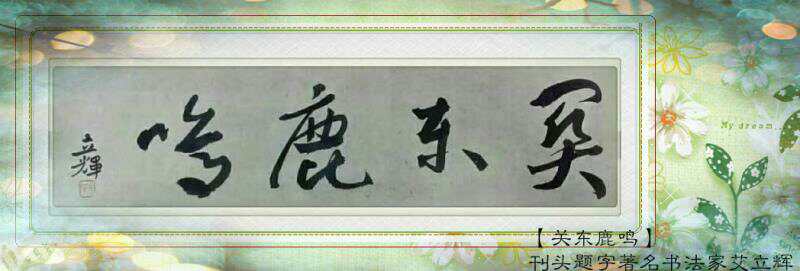 関东鹿鸣
立輝
My dream...
【关东鹿鸣】
刊头题字著名书法家艾立辉